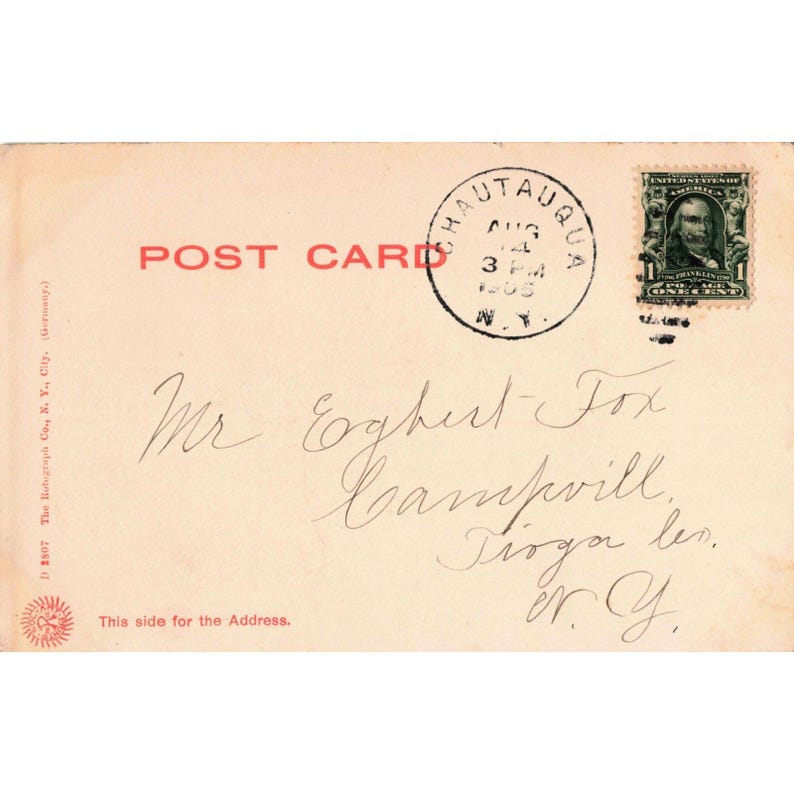 POST CARD
CHAUTAUQUA
AUG
14
3 PM
N.Y.
SERIES 1902
UNITED STATES OF
AMERICA
1 1706 FRANKLIN 1790 1
POSTAGE
ONE CENT
D 2807 The Rotograph Co., N. Y., City. (Germany.)
Mr Egbert Fox
Campvill,
Tioga Co.
N. Y.
This side for the Address.